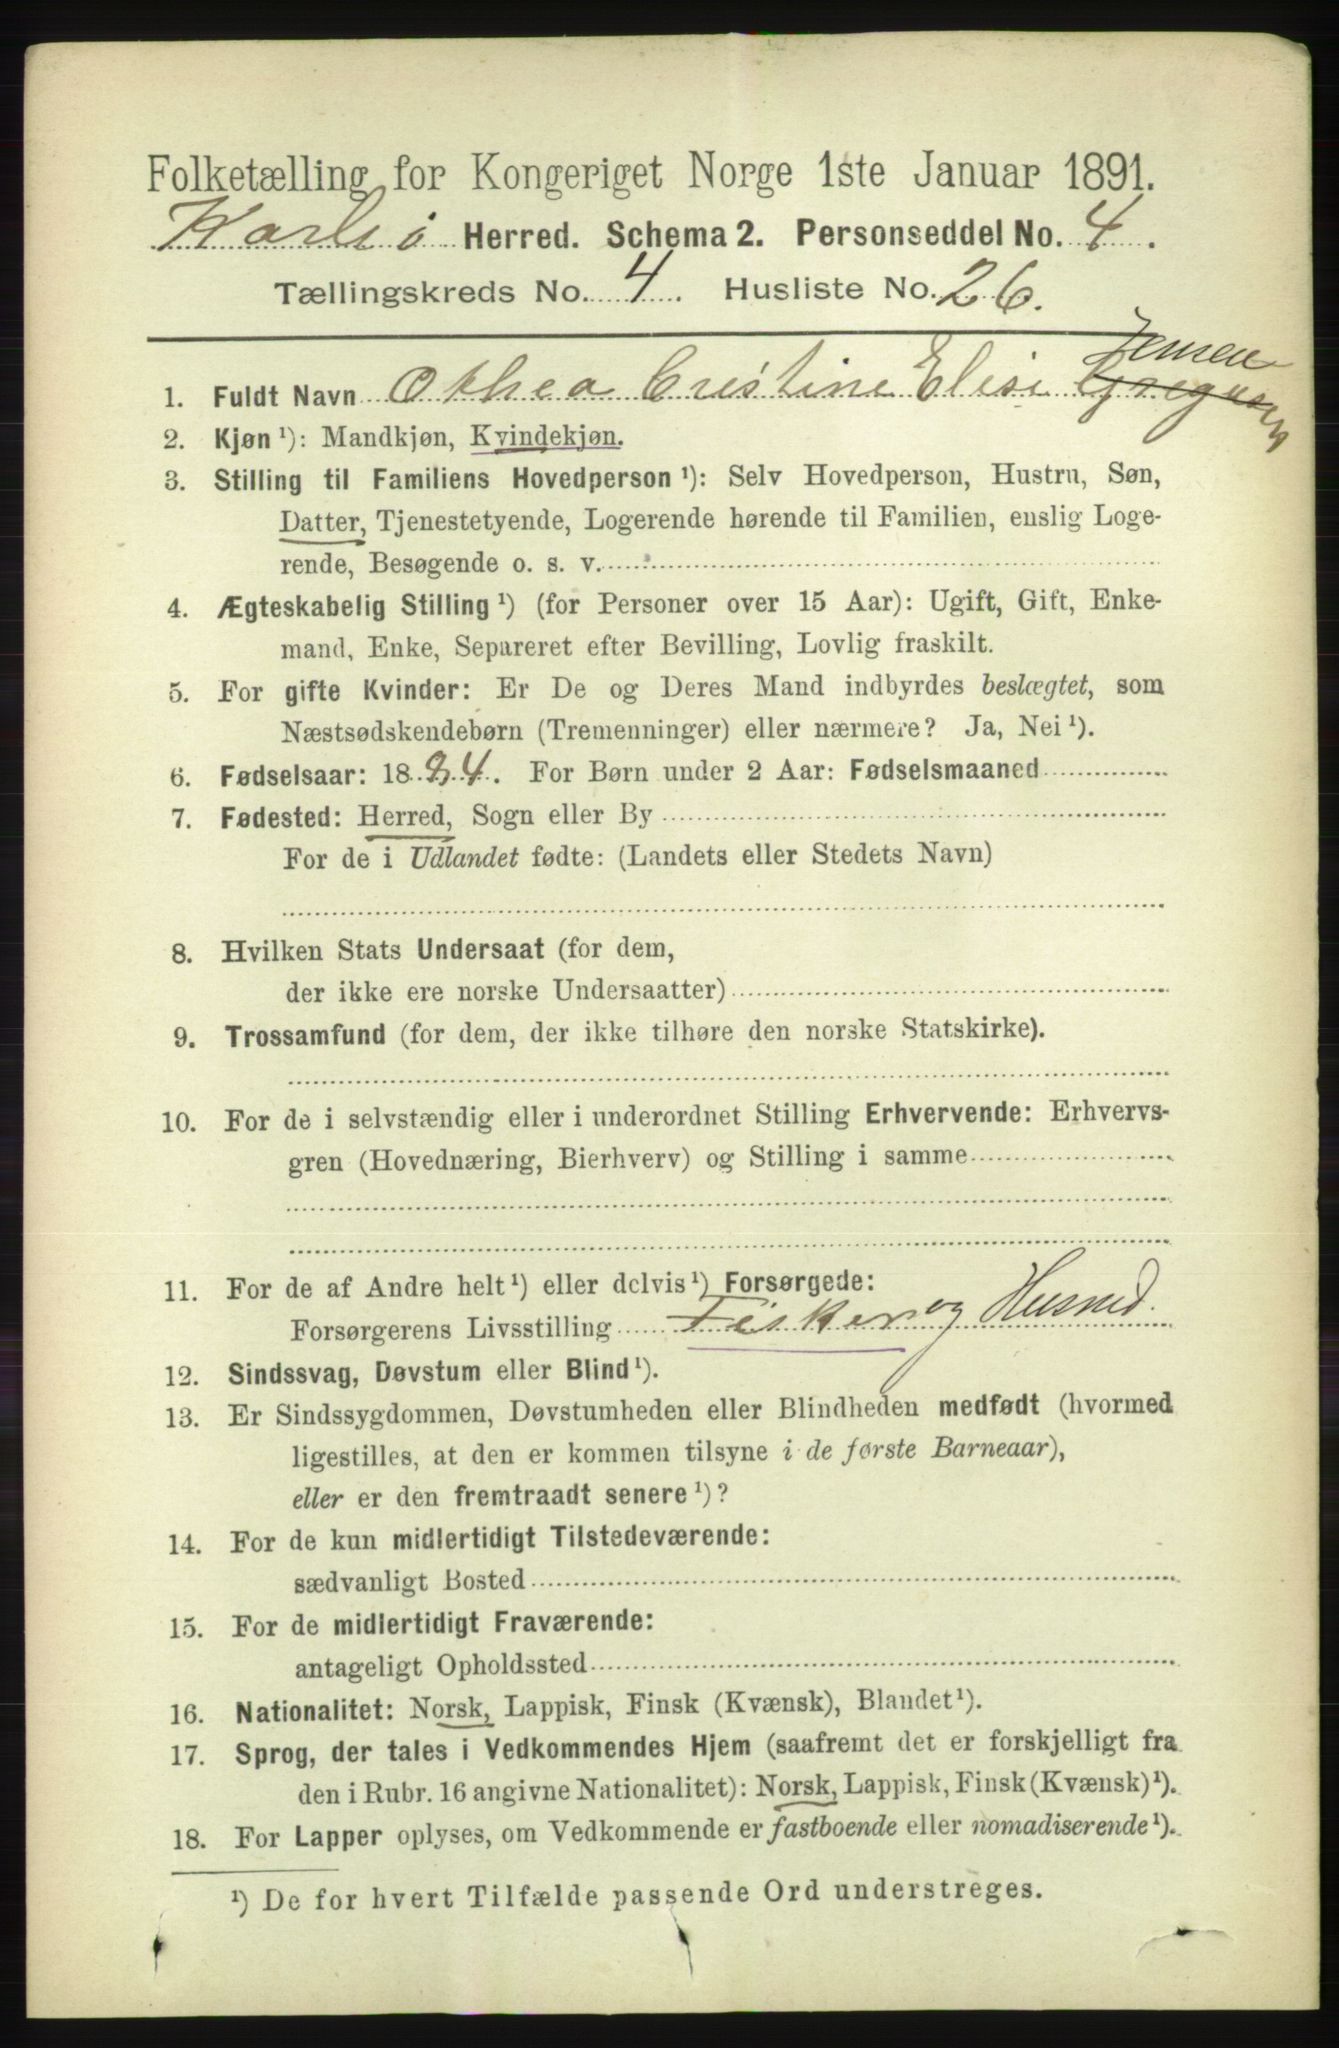 Folketælling for Kongeriget Norge 1ste Januar 1891.
Karlsø Herred. Schema 2. Personseddel No. 4.
Tællingskreds No. 4. Husliste No. 26.
Jensen
1. Fuldt Navn Othea Cristine Elise
2. Kjøn ¹): Mandkjøn, Kvindekjøn.
3. Stilling til Familiens Hovedperson ¹): Selv Hovedperson, Hustru, Søn,
Datter, Tjenestetyende, Logerende hørende til Familien, enslig Loge-
rende, Besøgende o. s. v.
4. Ægteskabelig Stilling ¹) (for Personer over 15 Aar): Ugift, Gift, Enke-
mand, Enke, Separeret efter Bevilling, Lovlig fraskilt.
5. For gifte Kvinder: Er De og Deres Mand indbyrdes beslægtet, som
Næstsødskendebørn (Tremenninger) eller nærmere? Ja, Nei ¹).
6. Fødselsaar: 1884. For Børn under 2 Aar: Fødselsmaaned
7. Fødested: Herred, Sogn eller By
For de i Udlandet fødte: (Landets eller Stedets Navn)
8. Hvilken Stats Undersaat (for dem,
der ikke ere norske Undersaatter)
9. Trossamfund (for dem, der ikke tilhøre den norske Statskirke).
10. For de i selvstændig eller i underordnet Stilling Erhvervende: Erhvervs-
gren (Hovednæring, Bierhverv) og Stilling i samme
11. For de af Andre helt ¹) eller delvis ¹) Forsørgede:
Forsørgerens Livsstilling Fisker og Husmd.
12. Sindssvag, Døvstum eller Blind ¹).
13. Er Sindssygdommen, Døvstumheden eller Blindheden medfødt (hvormed
ligestilles, at den er kommen tilsyne i de første Barneaar),
eller er den fremtraadt senere ¹)?
14. For de kun midlertidigt Tilstedeværende:
sædvanligt Bosted
15. For de midlertidigt Fraværende:
antageligt Opholdssted
16. Nationalitet: Norsk, Lappisk, Finsk (Kvænsk), Blandet ¹).
17. Sprog, der tales i Vedkommendes Hjem (saafremt det er forskjelligt fra
den i Rubr. 16 angivne Nationalitet): Norsk, Lappisk, Finsk (Kvænsk) ¹).
18. For Lapper oplyses, om Vedkommende er fastboende eller nomadiserende ¹).
¹) De for hvert Tilfælde passende Ord understreges.